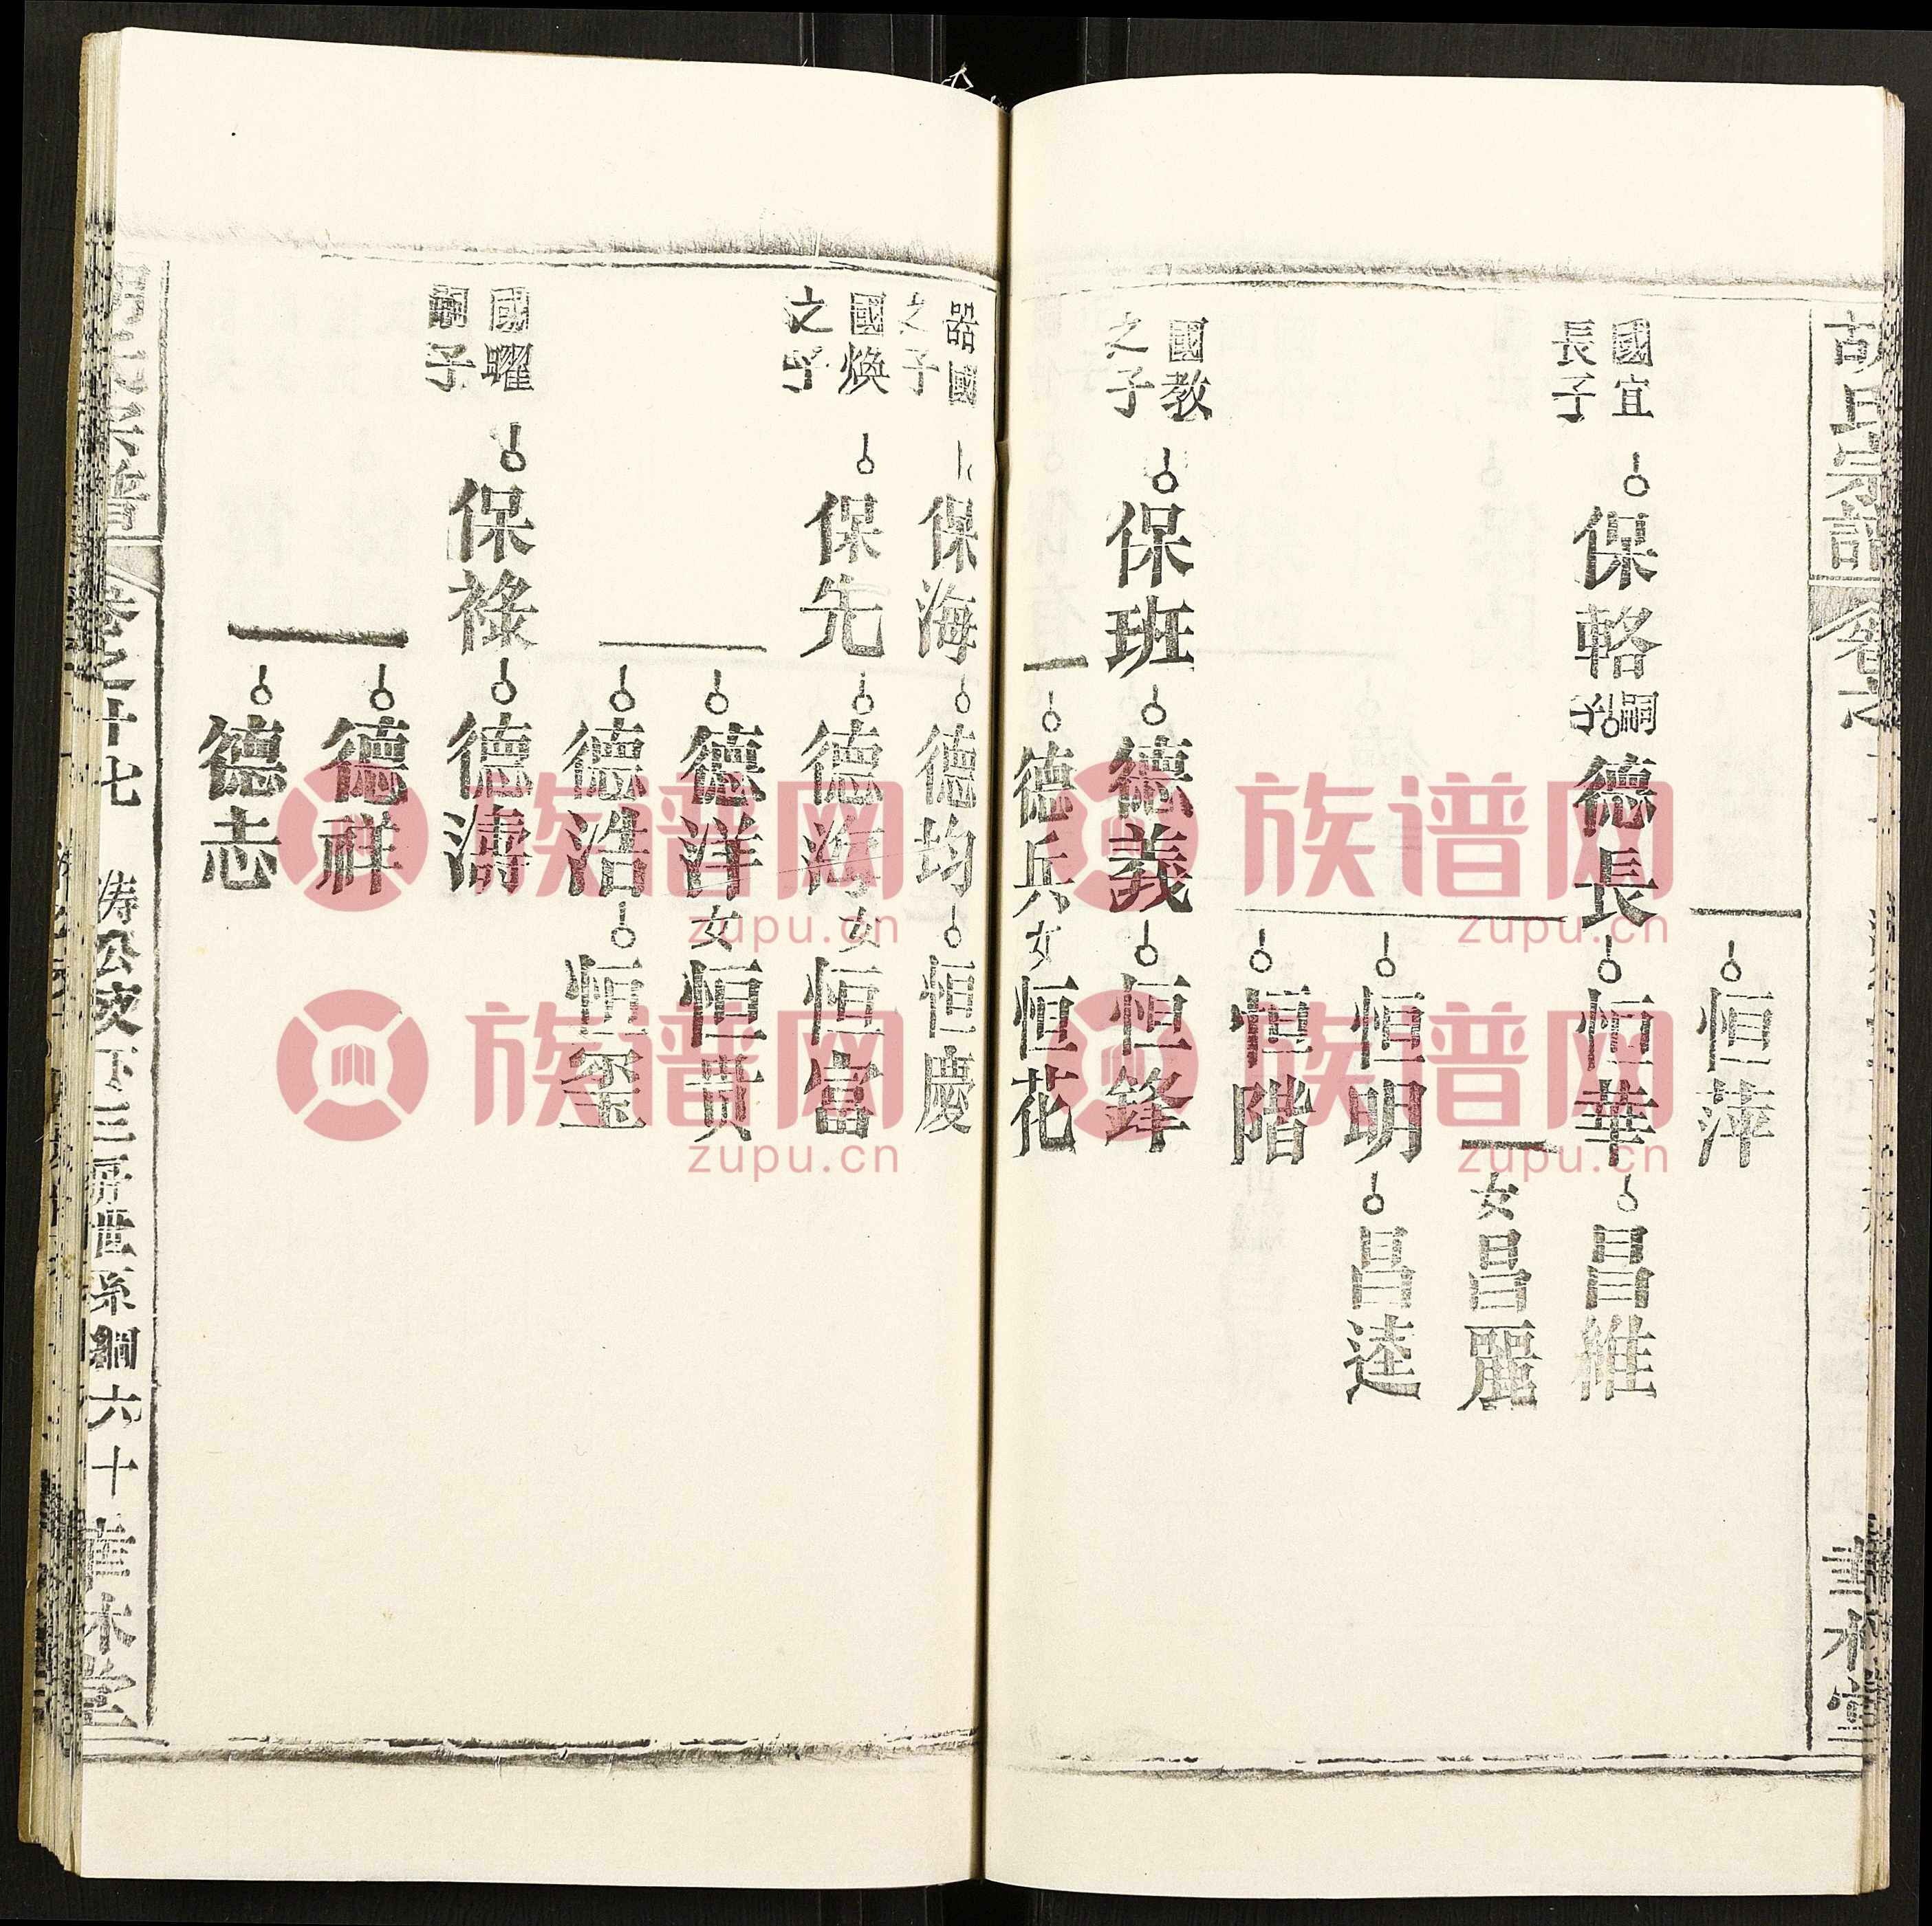 胡氏宗譜
卷之
恒萍
國宜
長子
保輅
嗣子
德長
恒華
昌維
女
昌麗
恒明
昌逵
恒階
國教
之子
保班
德義
恒鋒
德兵
女
恒花
器國
之子
保海
德均
恒慶
國煥
之子
保先
德海
女
恒富
德洋
女
恒貴
德浩
恒璽
國曜
嗣子
保祿
德濤
德祥
德志
胡氏宗譜
卷之十七
濤公支下三房世系綱
六十
堂
族谱网
zupu.cn
族谱网
zupu.cn
族谱网
zupu.cn
族谱网
zupu.cn